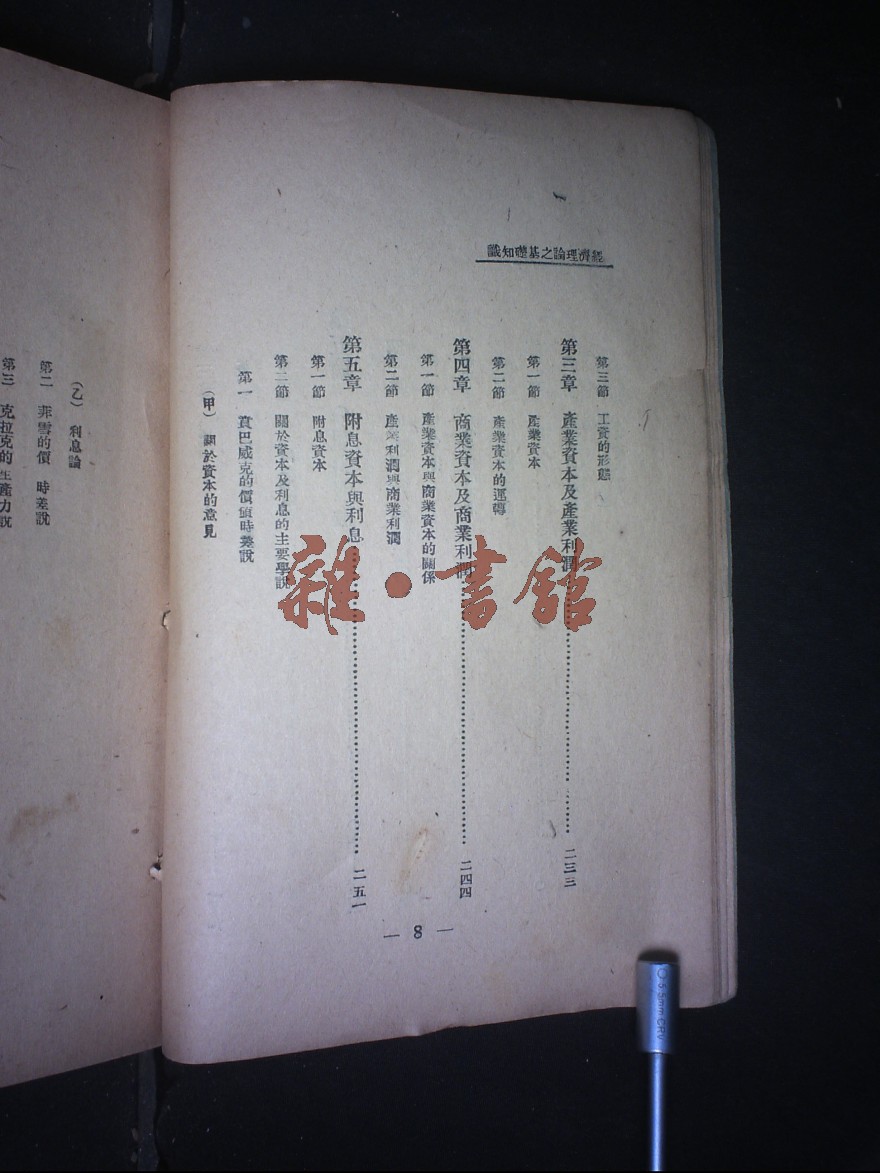 經濟理論之基礎知識
第三節 工資的形態
第三章 產業資本及產業利潤……二三三
第一節 產業資本
第二節 產業資本的運轉
第四章 商業資本及商業利潤……二四四
第一節 產業資本與商業資本的關係
第二節 產業利潤與商業利潤
第五章 附息資本與利息……二五一
第一節 附息資本
第二節 關於資本及利息的主要學說
(甲) 關於資本的意見
第一 賁巴威克的價值時差說
— 8 —
(乙) 利息論
第二 菲雪的價 時差說
第三 克拉克的生產力說
雜·書館
0.5mm CRV